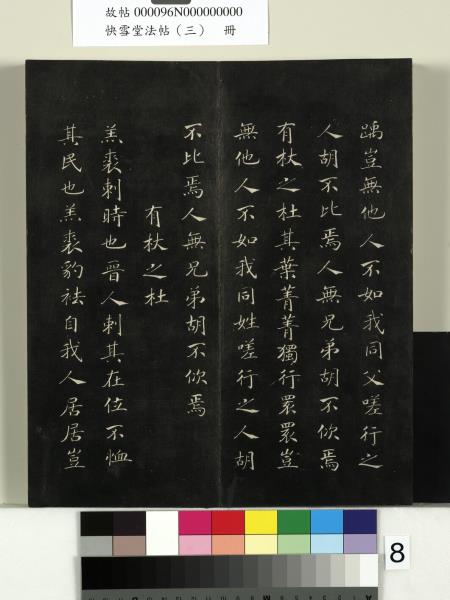 故帖 000096N000000000
快雪堂法帖（三） 冊
踽豈無他人不如我同父嗟行之
人胡不比焉人無兄弟胡不佽焉
有杕之杜其葉菁菁獨行睘睘豈
無他人不如我同姓嗟行之人胡
不比焉人無兄弟胡不佽焉
有杕之杜
羔裘刺時也晉人刺其在位不恤
其民也羔裘豹袪自我人居居豈
8